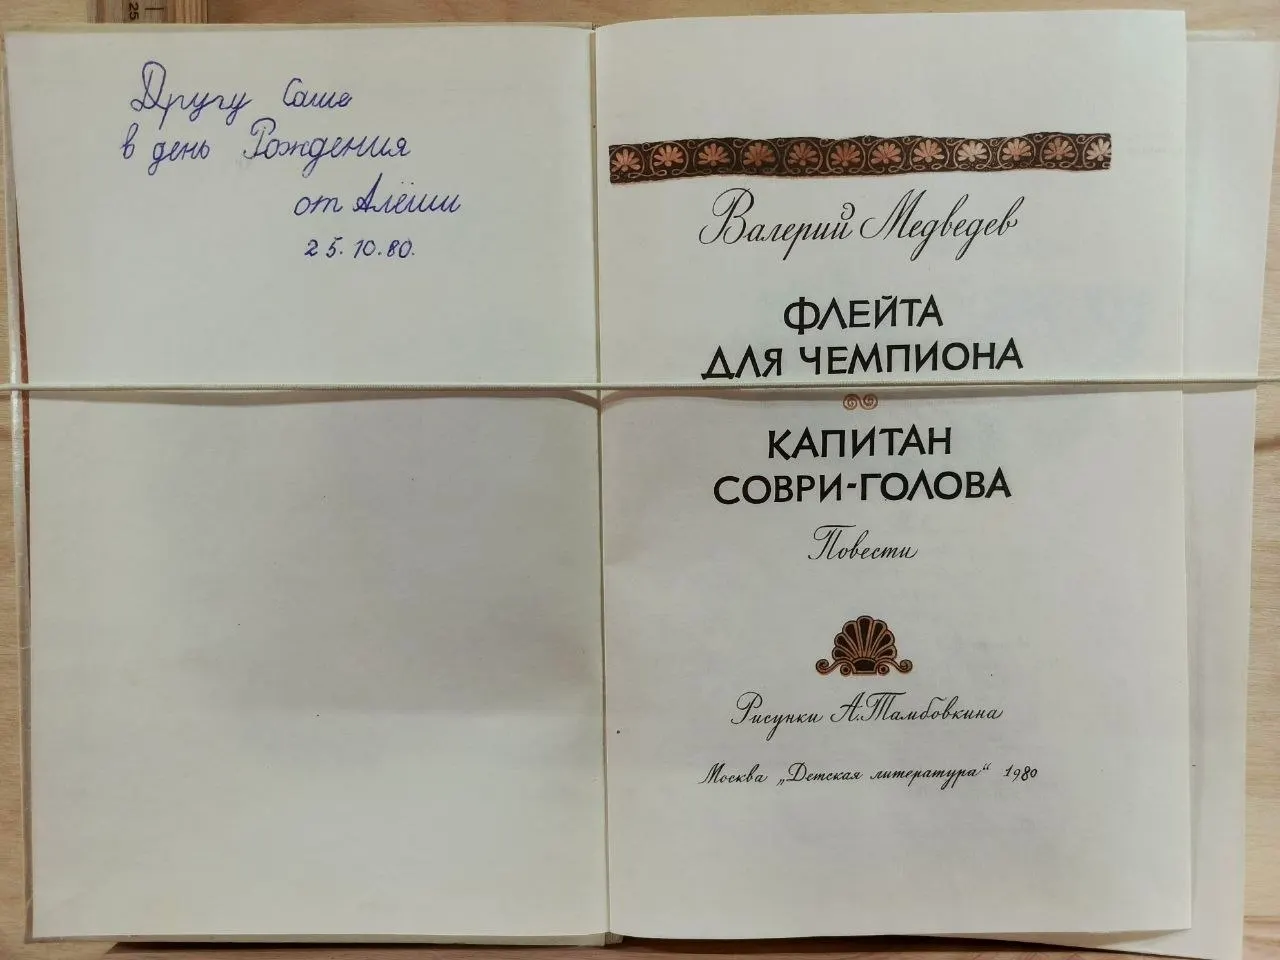 Другу Саше
в день Рождения
от Алёши
25.10.80.
Валерий Медведев
ФЛЕЙТА
ДЛЯ ЧЕМПИОНА
КАПИТАН
СОВРИ-ГОЛОВА
Повести
Рисунки А.Тамбовкина
Москва „Детская литература“ 1980
25